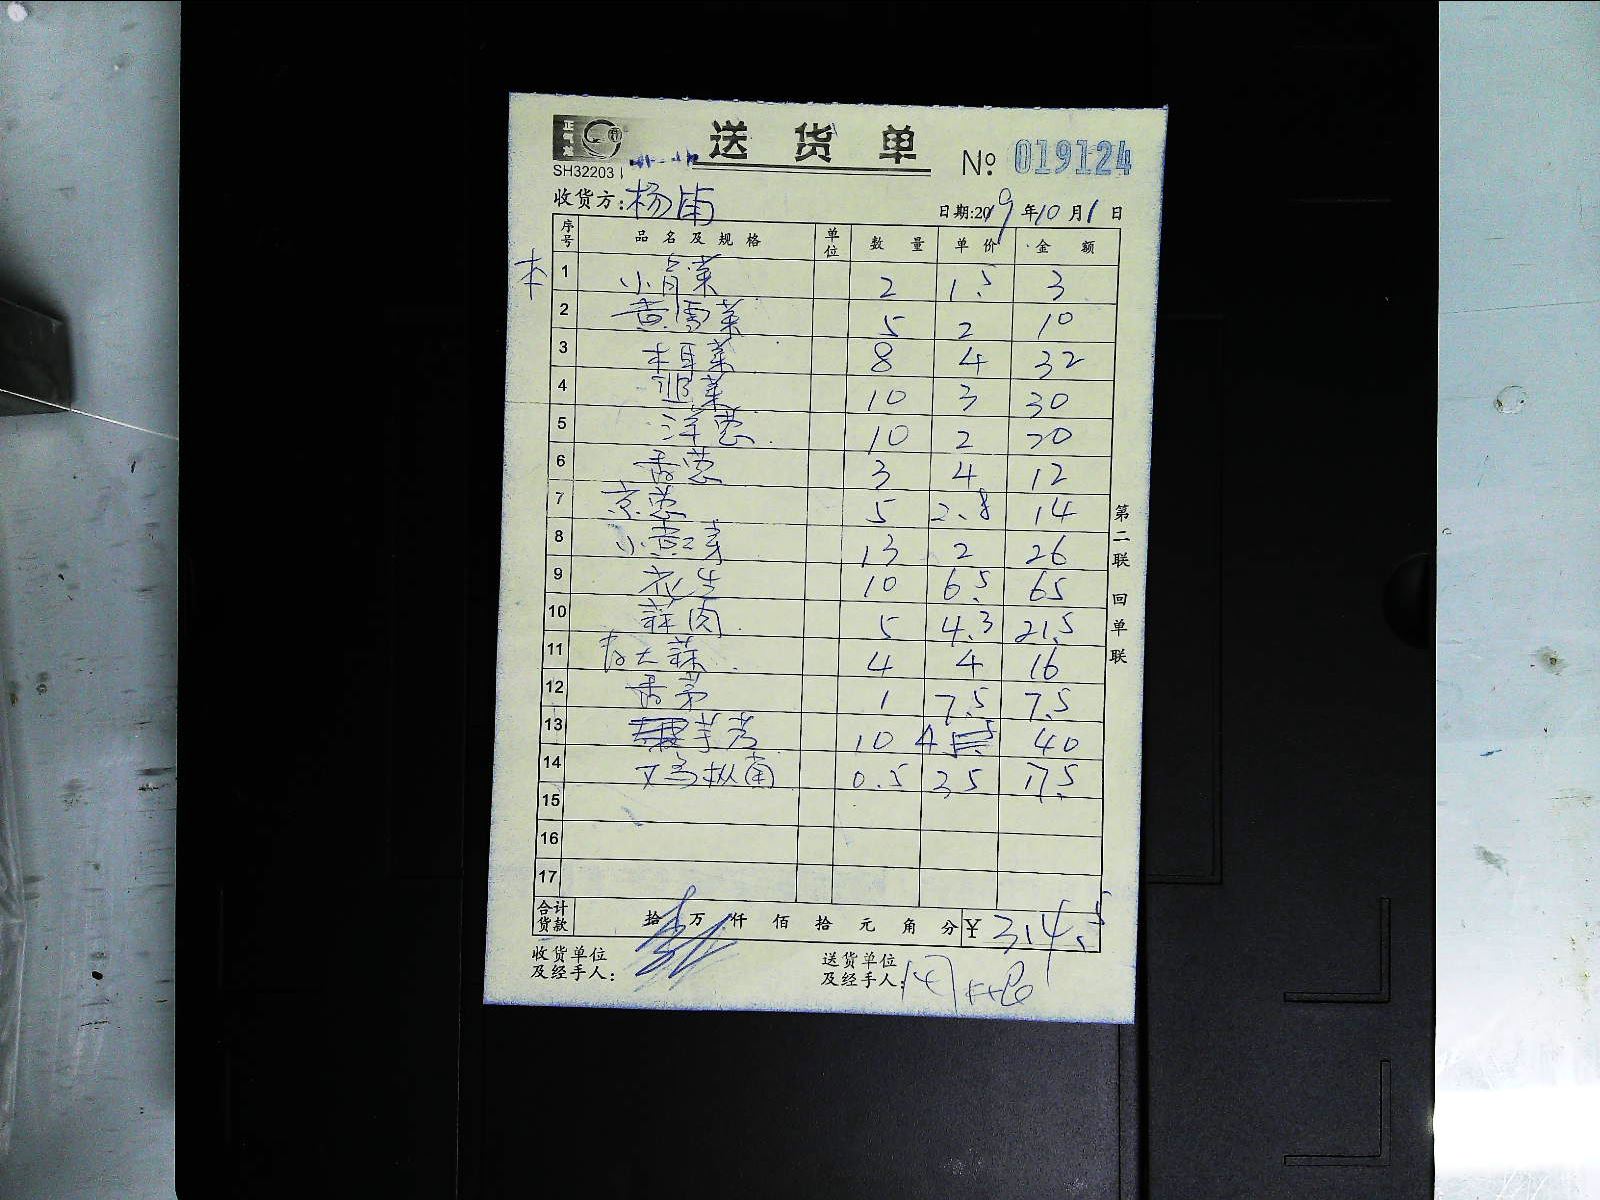 送货单
SH32203
№ 019124
收货方:杨浦
日期:2019年10月1日
序号 品名及规格 单位 数量 单价 金额
本
1 小青菜 2 1.5 3
2 5 2 10
3 木耳菜 8 4 32
4 10 3 30
5 洋葱 10 2 20
6 香葱 3 4 12
7 京葱 5 2.8 14
8 小黄芽 13 2 26
9 花生 10 6.5 65
10 蒜肉 5 4.3 21.5
11 大蒜 4 4 16
12 1 7.5 7.5
13 10 4 40
14 0.5 35 17.5
15
16
17
合计货款 拾万仟佰拾元角分 ¥314.5
收货单位及经手人:
送货单位及经手人:
第二联 回单联